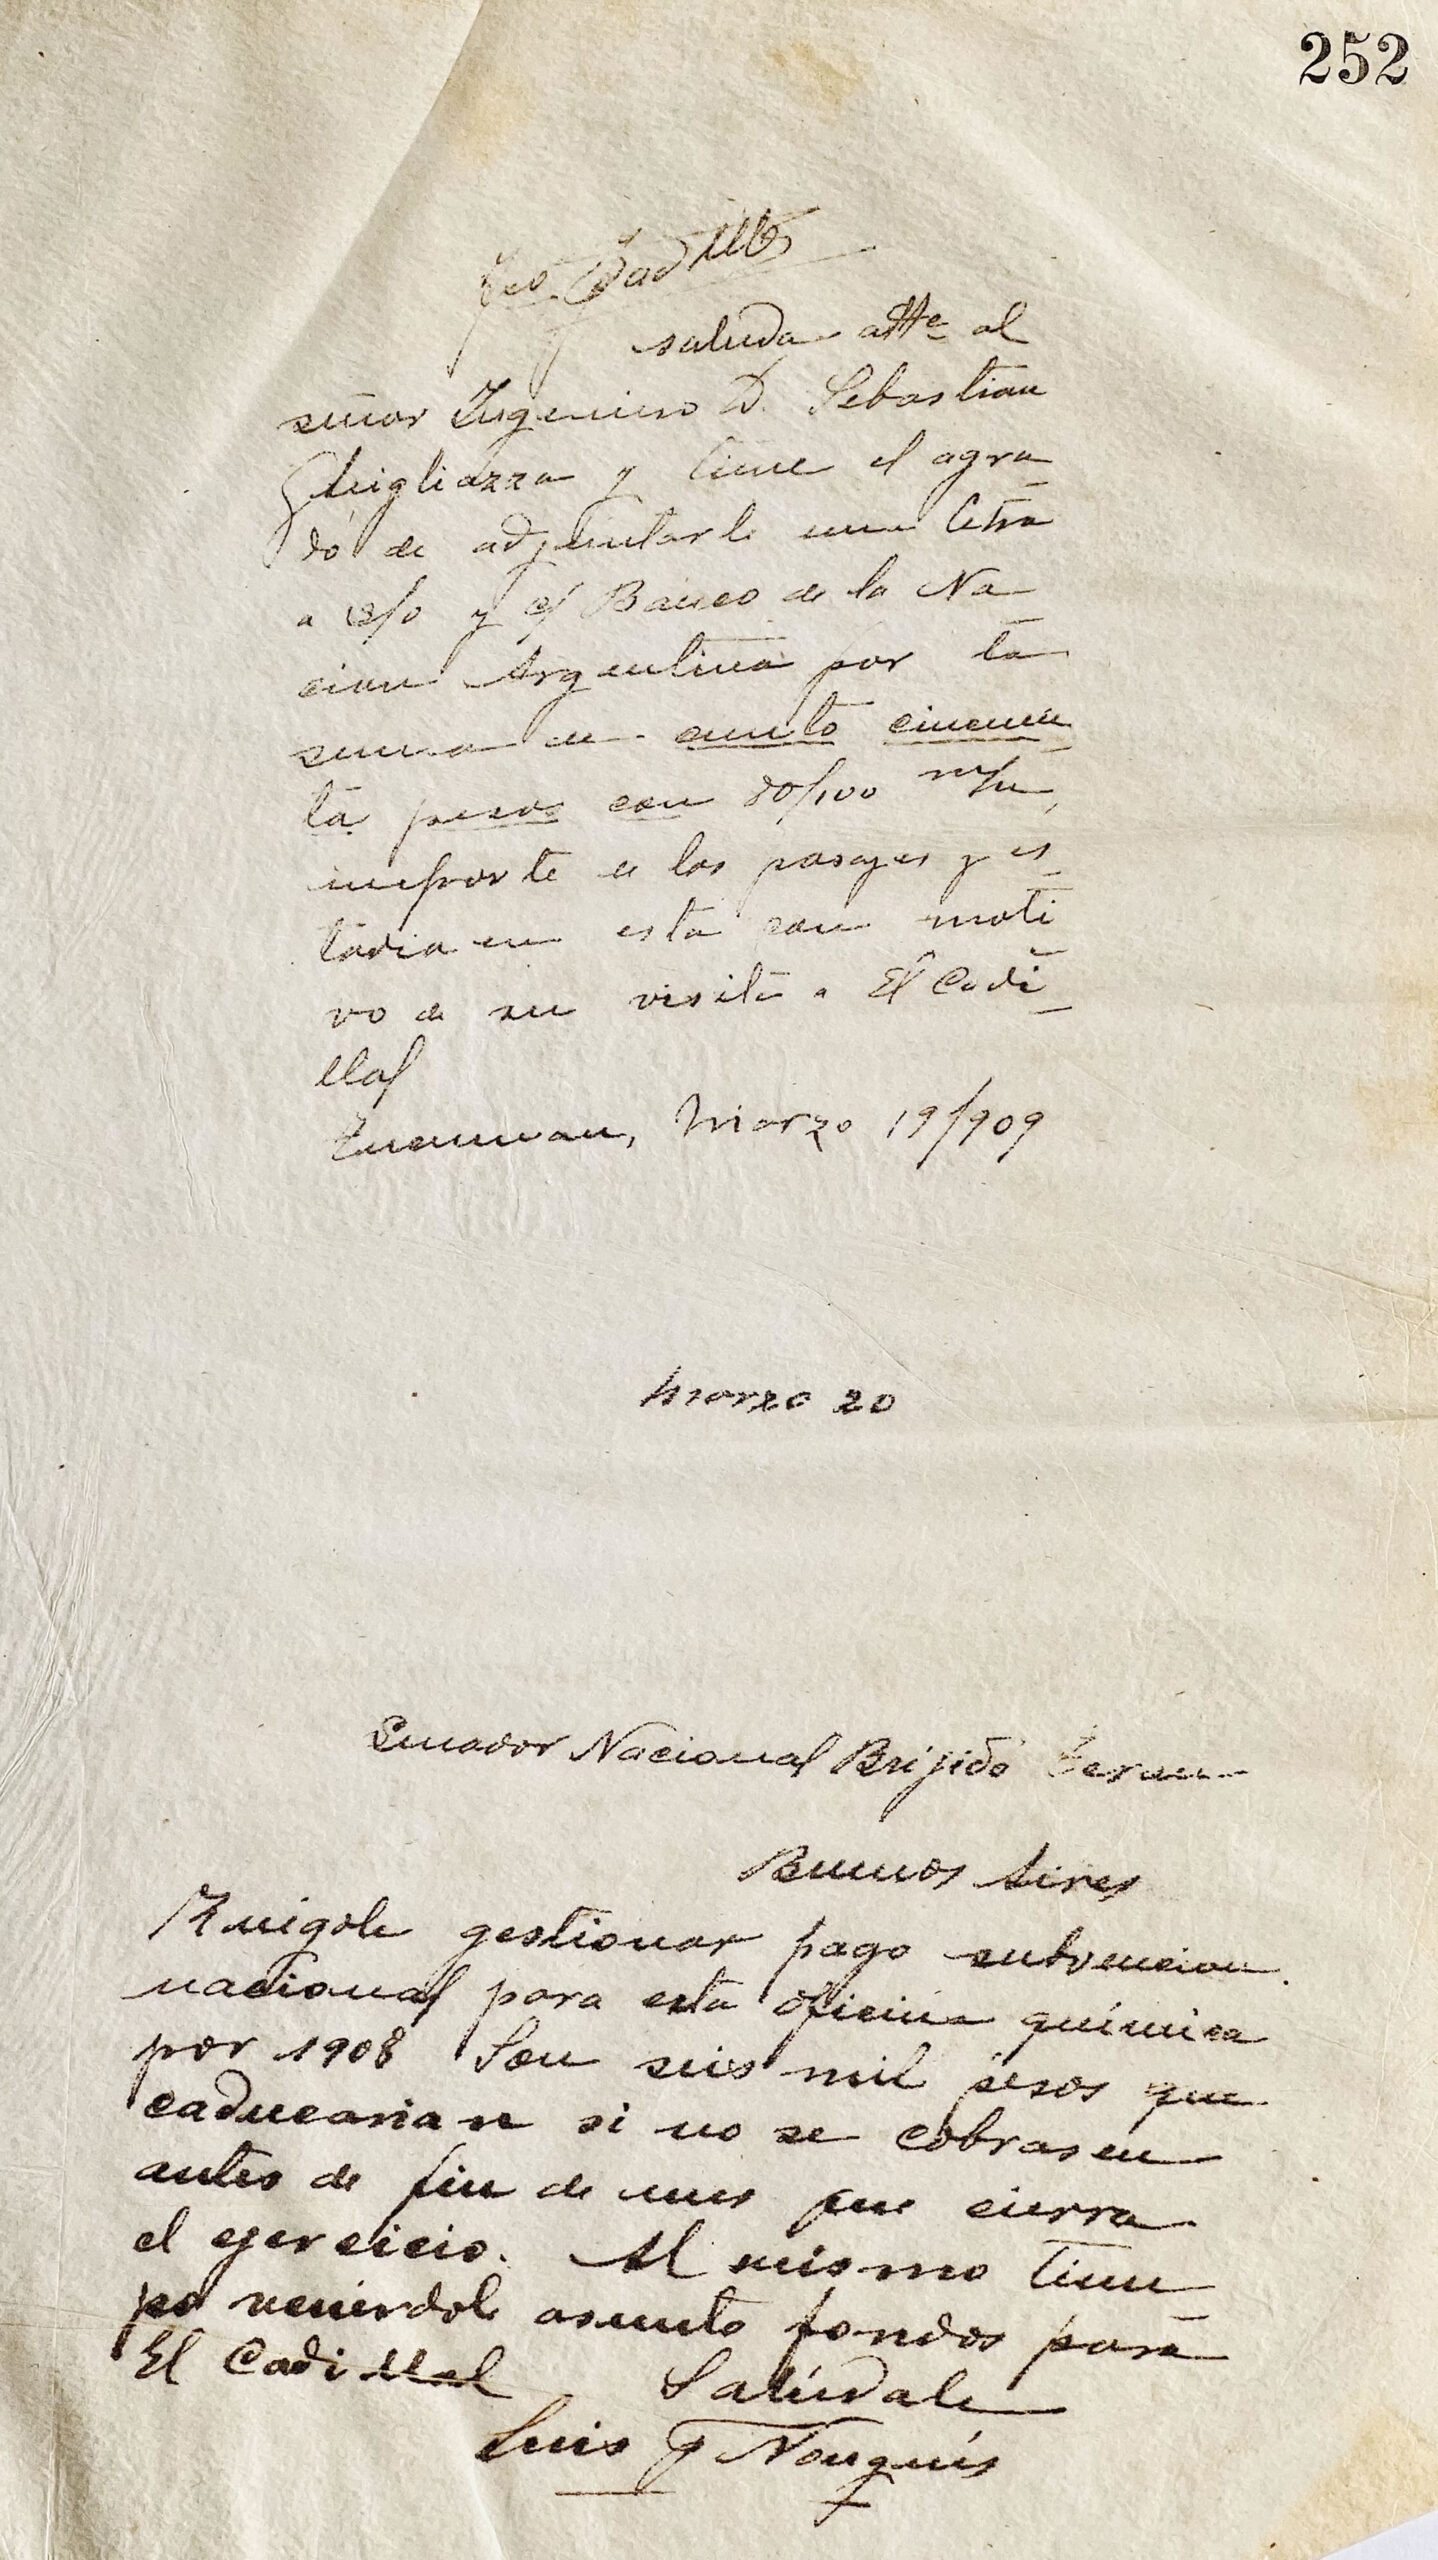 252
Fco. Padilla
saluda atte al
señor Ingeniero D. Sebastian
Ghigliazza y tiene el agra-
do de adjuntarle una letra
a s/o y c/ Banco de la Na-
cion Argentina por la
suma de ciento cincuen-
ta pesos con 80/100 m/n,
importe de los pasajes y es-
tadia en esta con moti-
vo de su visita a El Cadi-
llal
Tucuman, Marzo 19/909
Marzo 20
Senador Nacional Brijido Teran
Buenos Aires
Ruégole gestionar pago subvencion
nacional para esta oficina química
por 1908 Son seis mil pesos que
caducarian si no se cobrasen
antes de fin de mes que cierra
el ejercicio. Al mismo tiem-
po asunto fondos para
El Cadillal Salúdale
Luis F Nougués